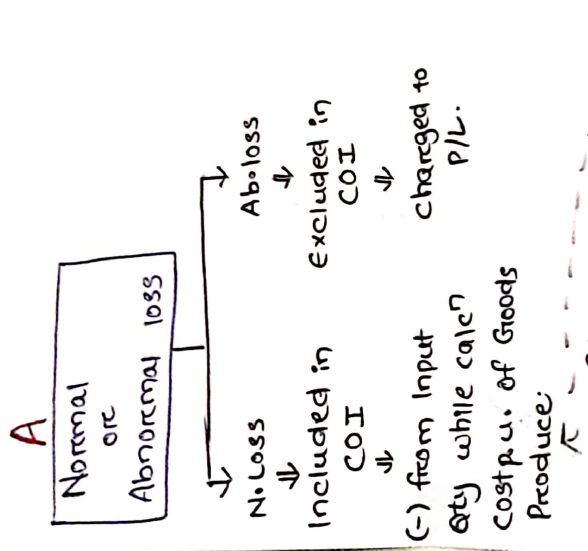 A
Normal
or
Abnormal loss
N.Loss
Included in
COI
(-) from Input
Qty while calcn
Cost p.u. of Goods
Produce.
Ab.loss
Excluded in
COI
charged to
P/L.